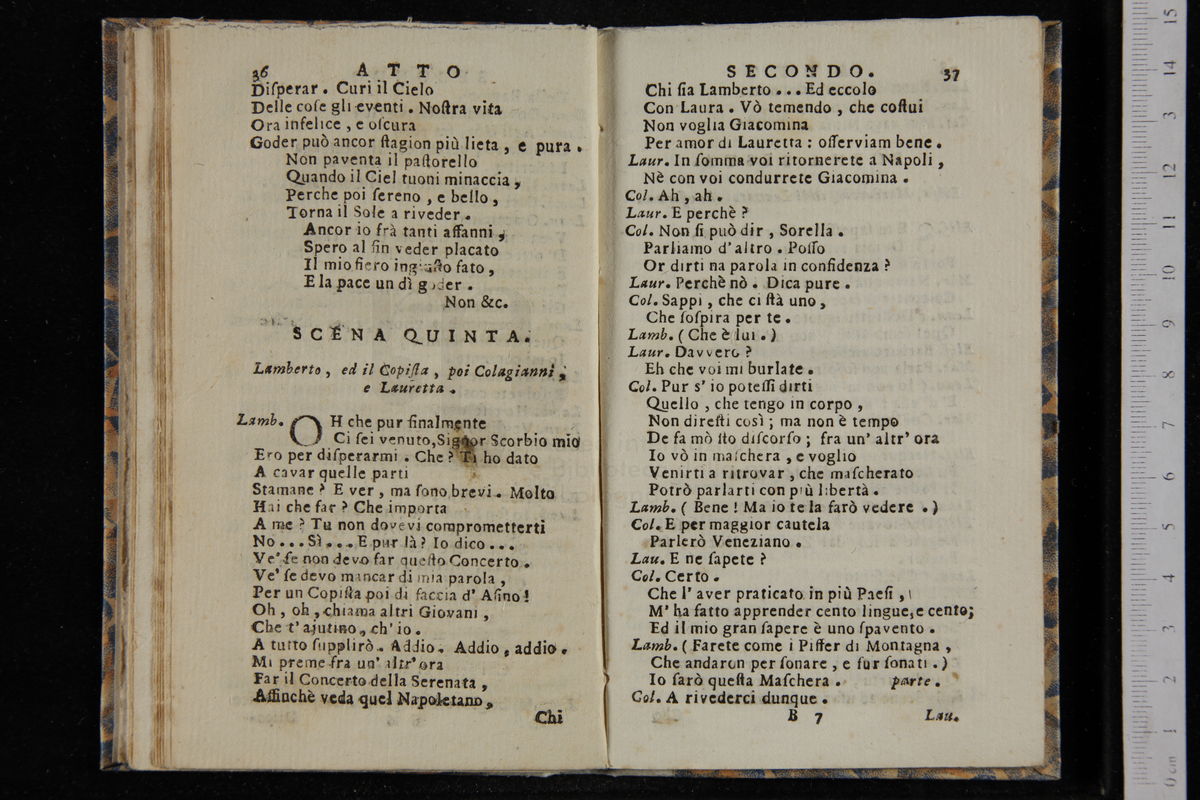 36 ATTO
Diſperar. Curi il Cielo
Delle coſe gli eventi. Noſtra vita
Ora infelice, e oſcura
Goder può ancor ſtagion più lieta, e pura.
Non paventa il paſtorello
Quando il Ciel tuoni minaccia,
Perche poi ſereno, e bello,
Torna il Sole a riveder.
Ancor io frà tanti affanni,
Spero al fin veder placato
Il mio fiero ingiuſto fato,
E la pace un dì goder.
Non &c.
SCENA QUINTA.
Lamberto, ed il Copiſta, poi Colagianni,
e Lauretta.
Lamb. OH che pur finalmente
Ci ſei venuto, Signor Scorbio mio
Ero per diſperarmi. Che? Ti ho dato
A cavar quelle parti
Stamane? E ver, ma ſono brevi. Molto
Hai che far? Che importa
A me? Tu non dovevi comprometterti
No... Sì.... E pur là? Io dico...
Ve' ſe non devo far queſto Concerto.
Ve' ſe devo mancar di mia parola,
Per un Copiſta poi di faccia d' Aſino!
Oh, oh, chiama altri Giovani,
Che t' ajutino, ch' io.
A tutto ſupplirò. Addio. Addio, addio.
Mi preme fra un' altr' ora
Far il Concerto della Serenata,
Affinchè veda quel Napoletano,
Chi
SECONDO. 37
Chi ſia Lamberto... Ed eccolo
Con Laura. Vò temendo, che coſtui
Non voglia Giacomina
Per amor di Lauretta: oſſerviam bene.
Laur. In ſomma voi ritornerete a Napoli,
Nè con voi condurrete Giacomina.
Col. Ah, ah.
Laur. E perchè?
Col. Non ſi può dir, Sorella.
Parliamo d' altro. Poſſo
Or dirti na parola in confidenza?
Laur. Perchè nò. Dica pure.
Col. Sappi, che ci ſtà uno,
Che ſoſpira per te.
Lamb. (Che è lui.)
Laur. Davvero?
Eh che voi mi burlate.
Col. Pur s' io poteſſi dirti
Quello, che tengo in corpo,
Non direſti così; ma non è tempo
De fa mò ſto diſcorſo; fra un' altr' ora
Io vò in maſchera, e voglio
Venirti a ritrovar, che maſcherato
Potrò parlarti con più libertà.
Lamb. (Bene! Ma io te la farò vedere.)
Col. E per maggior cautela
Parlerò Veneziano.
Lau. E ne ſapete?
Col. Certo.
Che l' aver praticato in più Paeſi,
M' ha fatto apprender cento lingue, e cento;
Ed il mio gran ſapere è uno ſpavento.
Lamb. (Farete come i Piffer di Montagna,
Che andaron per ſonare, e fur ſonati.)
Io ſarò queſta Maſchera. parte.
Col. A rivederci dunque.
B 7 Lau.